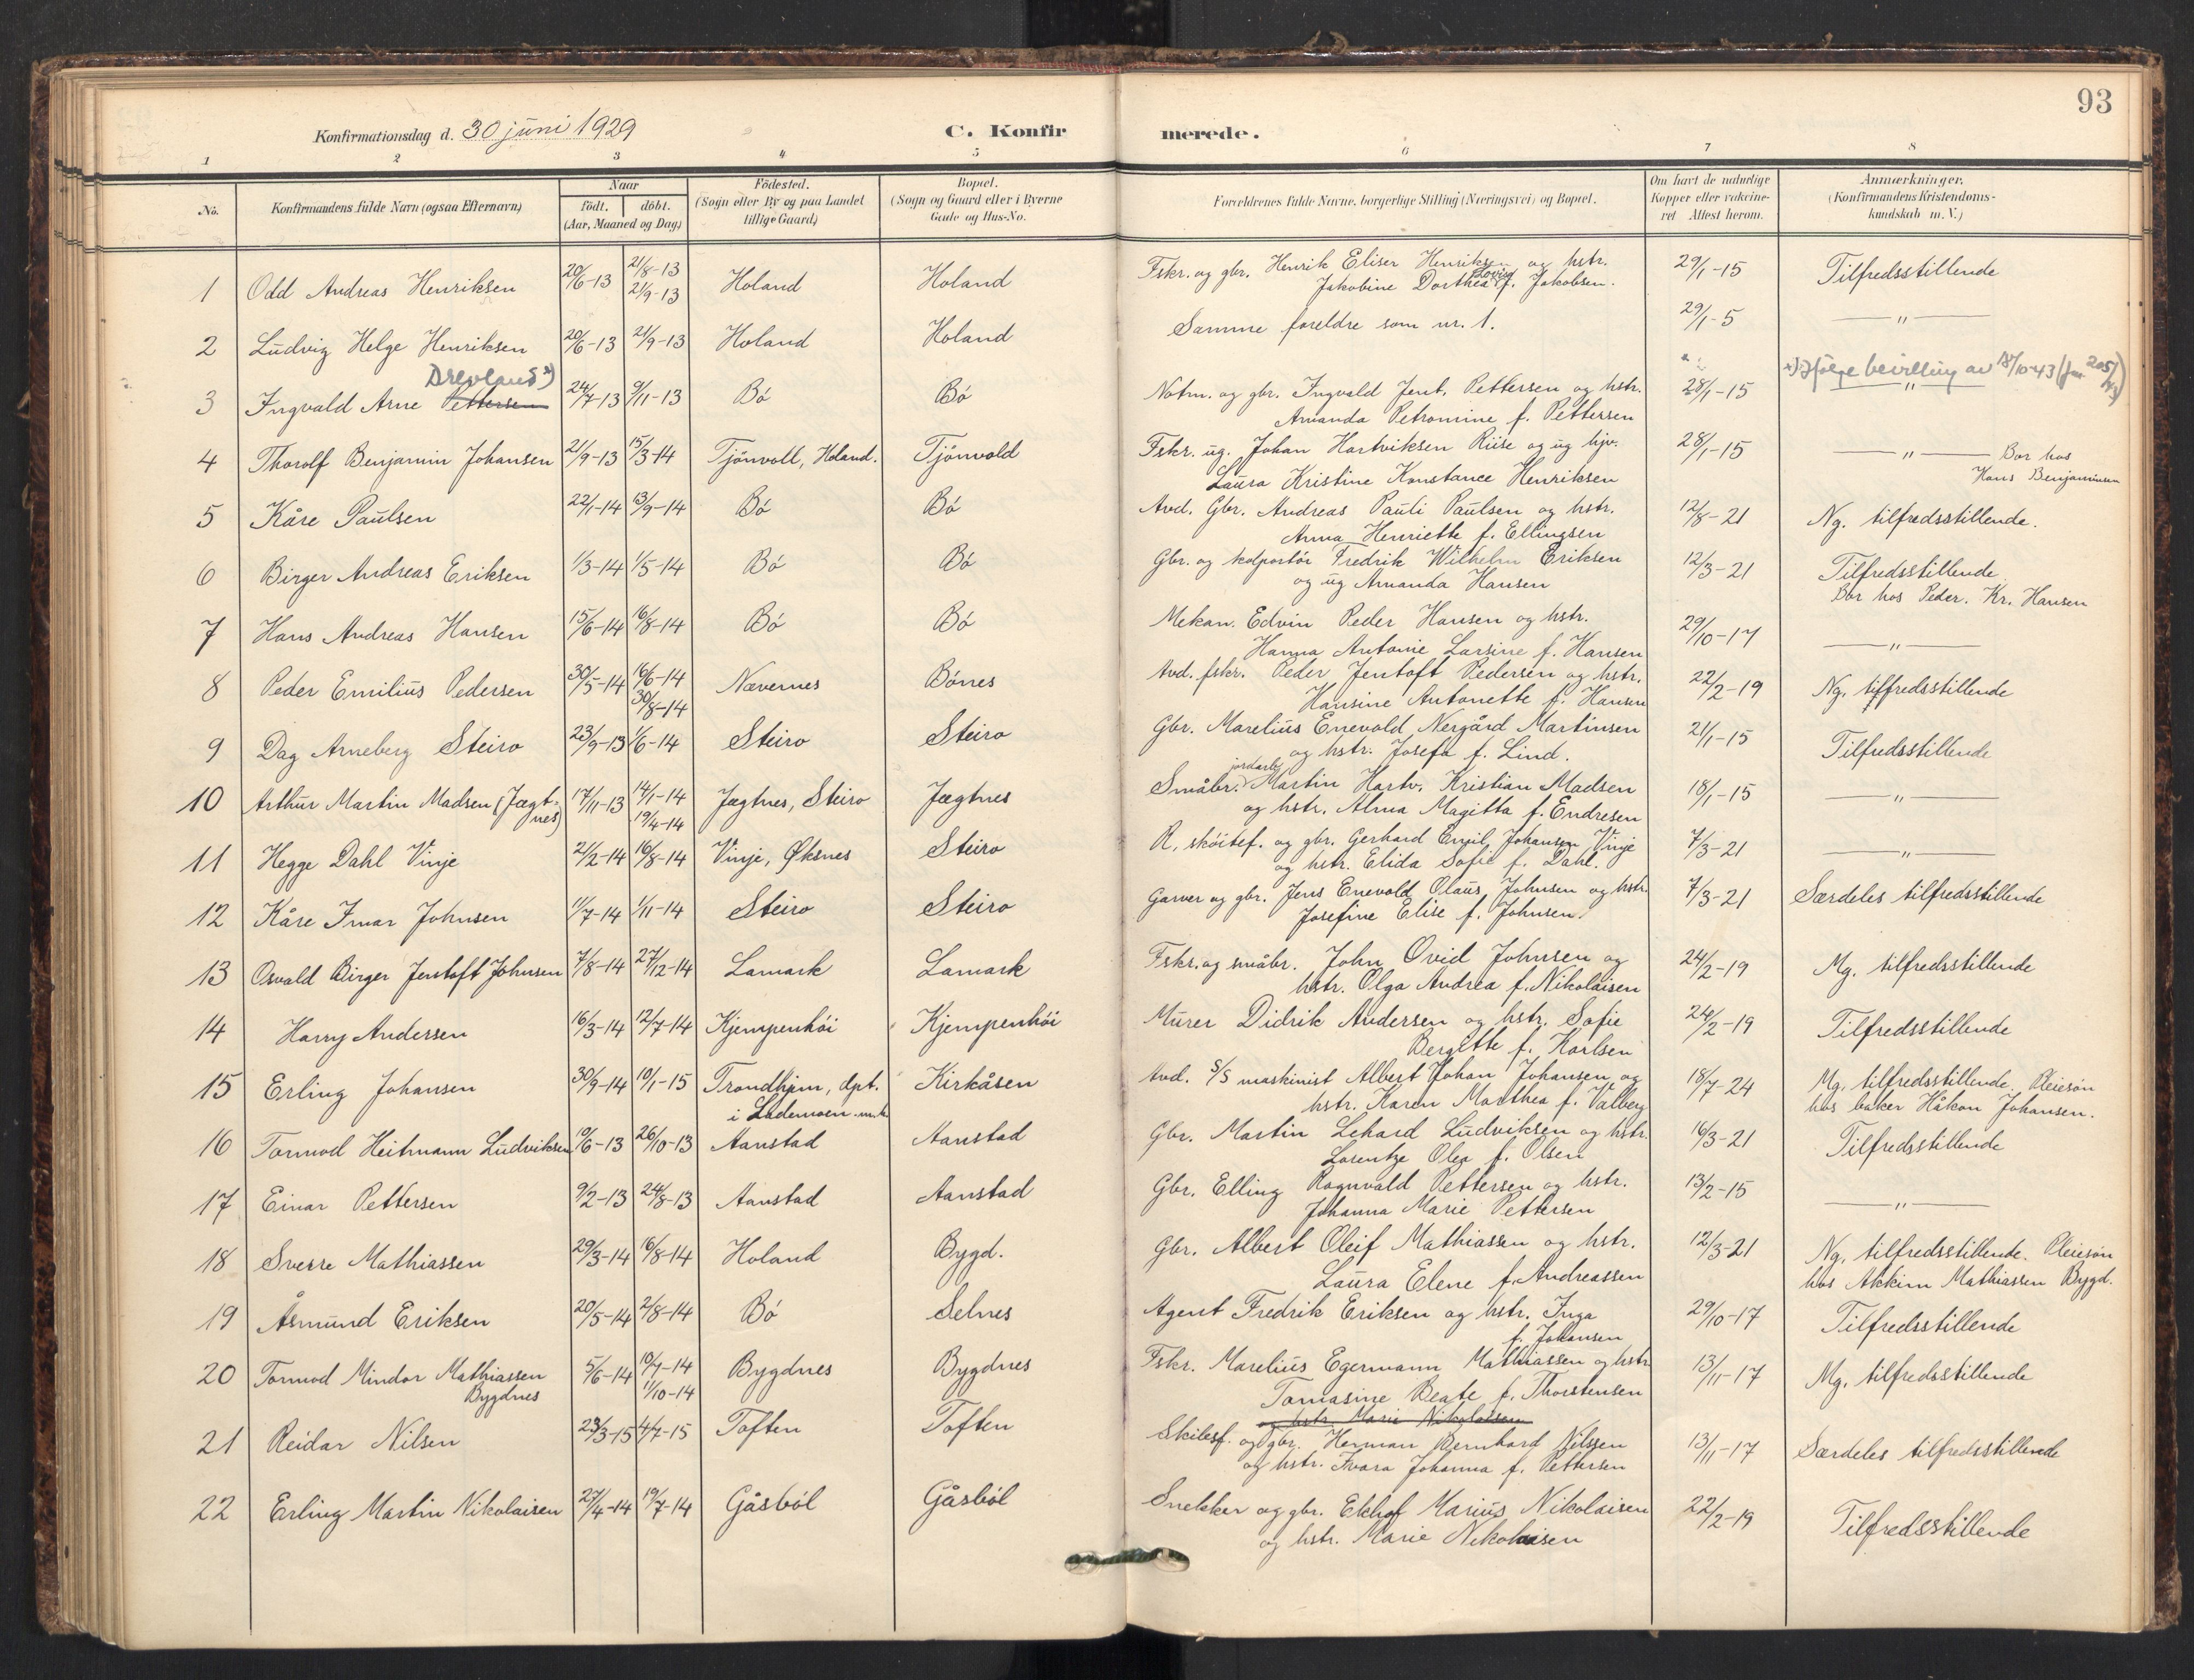 93
Konfirmationsdag d. 30 juni 1929
C. Konfirmerede.
1 2 3 4 5 6 7 8
No.
Konfirmandens fulde Navn (ogsaa Efternavn)
Naar
födt. döbt.
(Aar, Maaned og Dag)
Födested.
(Sogn eller By og paa Landet
tillige Gaard)
Bopæl.
(Sogn og Gaard eller i Byerne
Gade og Hus-No.
Forældrenes fulde Navne, borgerlige Stilling (Næringsvei) og Bopæl.
Om havt de naturlige
Kopper eller vakcine-
ret Attest herom.
Anmærkninger.
(Konfirmandens Kristendoms-
kundskab m. V.)
1 Odd Andreas Henriksen 20/6-13 21/8-13 21/9-13 Holand Holand Fskr. og gbr. Henrik Eliser Henriksen og hstr. 29/1-15 Tilfredsstillende
Jakobine Dorthea Lovise f. Jakobsen.
2 Ludvig Helge Henriksen 20/6-13 21/9-13 Holand Holand Samme foreldre som nr. 1. 29/1-5 —"—
Drevland x)
x) Ifølge bevilling av 18/10-43 (jnr 205/43)
3 Ingvald Arne Pettersen 24/7-13 9/11-13 Bö Bö Notm. og gbr. Ingvald Jent. Pettersen og hstr. 28/1-15 —"—
Amanda Petromine f. Pettersen
4 Thorolf Benjamin Johansen 21/9-13 15/3-14 Tjönvoll, Holand. Tjönvold Fskr. ug. Johan Hartviksen Riise og ug hjv. 28/1-15 —"— Bor hos
Laura Kristine Konstance Henriksen Hans Benjaminsen
5 Kåre Paulsen 22/1-14 13/9-14 Bö Bö Avd. Gbr. Andreas Pauli Paulsen og hstr. 12/8-21 Ng. tilfredsstillende.
Anna Henriette f. Ellingsen
6 Birger Andreas Eriksen 1/3-14 1/5-14 Bö Bö Gbr. og kolportör Fredrik Wilhelm Eriksen 12/3-21 Tilfredsstillende
og ug Amanda Hansen Bor hos Peder. Kr. Hansen
7 Hans Andreas Hansen 15/6-14 16/8-14 Bö Bö Mekan. Edvin Peder Hansen og hstr. 29/10-17 —"—
Hanna Antonie Larsine f. Hansen
8 Peder Emilius Pedersen 30/5-14 16/6-14 30/8-14 Nævernes Bönes Avd. fskr. Peder Jentoft Pedersen og hstr. 22/2-19 Ng. tilfredsstillende
Hansine Antonette f. Hansen
9 Dag Arneberg Steiro 23/9-13 1/6-14 Steiro Steiro Gbr. Marelius Enevold Nergård Martinsen 21/1-15 Tilfredsstillende
og hstr. Josefa f. Lind.
jordarb.
10 Arthur Martin Madsen (Jægtnes) 17/11-13 14/1-14 19/4-14 Jægtnes, Steiro Jægtnes Småbr. Martin Hartv. Kristian Madsen 18/1-15 —"—
og hstr. Alma Magitta f. Endresen
11 Hegge Dahl Vinje 2/2-14 16/8-14 Vinje, Øksnes Steiro R. sköitef. og gbr. Gerhard Emil Johansen Vinje 7/3-21 —"—
og hstr. Elida Sofie f. Dahl.
12 Kåre Imar Johnsen 11/7-14 1/11-14 Steiro Steiro Garver og gbr. Jens Enevold Olaus Johnsen og hstr. 7/3-21 Særdeles tilfredsstillende
Josefine Elise f. Johnsen.
13 Osvald Birger Jentoft Johnsen 7/8-14 27/12-14 Lamark Lamark Fskr. og småbr. John Ovid Johnsen og 24/2-19 Mg. tilfredsstillende
hstr. Olga Andrea f. Nikolaisen
14 Harry Andersen 16/3-14 12/7-14 Kjempenhöi Kjempenhöi Murer Didrik Andersen og hstr. Sofie 24/2-19 Tilfredsstillende
Bergitte f. Karlsen
15 Erling Johansen 30/9-14 10/1-15 Trondhjem, dpt. Kirkåsen Avd. S/S maskinist Albert Johan Johansen og 18/7-24 Mg. tilfredsstillende. Pleiesön
i Lademoen m.h. hstr. Karen Marthea f. Valberg hos baker Håkon Johansen.
16 Tormod Heitmann Ludviksen 10/6-13 26/10-13 Aanstad Aanstad Gbr. Martin Lehard Ludviksen og hstr. 16/3-21 Tilfredsstillende
Lorentze Olea f. Olsen
17 Einar Pettersen 9/2-13 24/8-13 Aanstad Aanstad Gbr. Elling Ragnvald Pettersen og hstr. 13/2-15 —"—
Johanna Marie Pettersen
18 Sverre Mathiassen 29/3-14 16/8-14 Holand Bygd. Gbr. Albert Oleif Mathiassen og hstr. 12/3-21 Ng. tilfredsstillende. Pleiesön
Laura Elene f. Andreassen hos Akkim Mathiassen Bygd.
19 Åsmund Eriksen 20/5-14 2/8-14 Bö Selnes Agent Fredrik Eriksen og hstr. Inga 29/10-17 Tilfredsstillende
f. Johansen
20 Tormod Mindor Mathiassen 5/6-14 10/7-14 11/10-14 Bygdnes Bygdnes Fskr. Marelius Egermann Mathiassen og hstr 13/11-17 Mg. tilfredsstillende
Bygdnes Tomasine Beate f. Thorstensen
og hstr. Marie Nikolaisen
21 Reidar Nilsen 23/3-15 4/7-15 Toften Toften Skibsf. og gbr. Herman Bernhard Nilssen 13/11-17 Særdeles tilfredsstillende
og hstr. Ivara Johanna f. Pettersen
22 Erling Martin Nikolaisen 27/4-14 19/7-14 Gåsböl Gåsböl Snekker og gbr. Ekhof Marius Nikolaisen 22/2-19 Tilfredsstillende
og hstr. Marie Nikolaisen